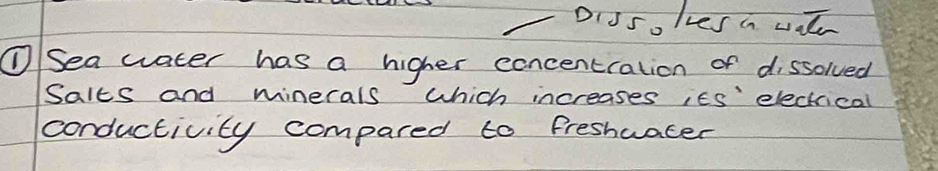 — Dissolves in water
① Sea water has a higher concentration of dissolved
Salts and minerals which increases its' electrical
conductivity compared to freshwater